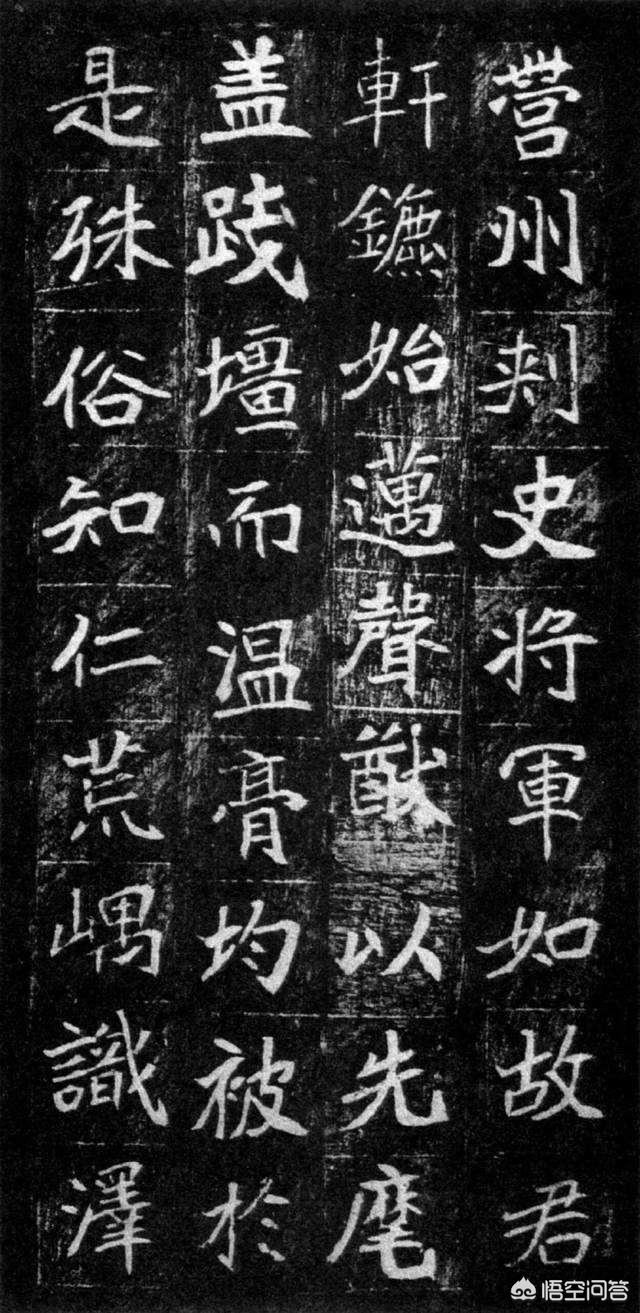 營州刾史将軍如故君
軒鑣始邁聲猷以先麾
盖践壃而温膏均被於
是殊俗知仁荒嵎識澤
悟空问答